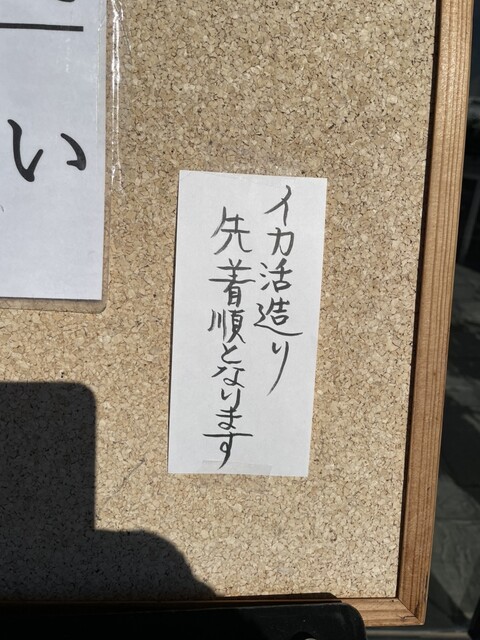 イカ活造り
先着順となります
い